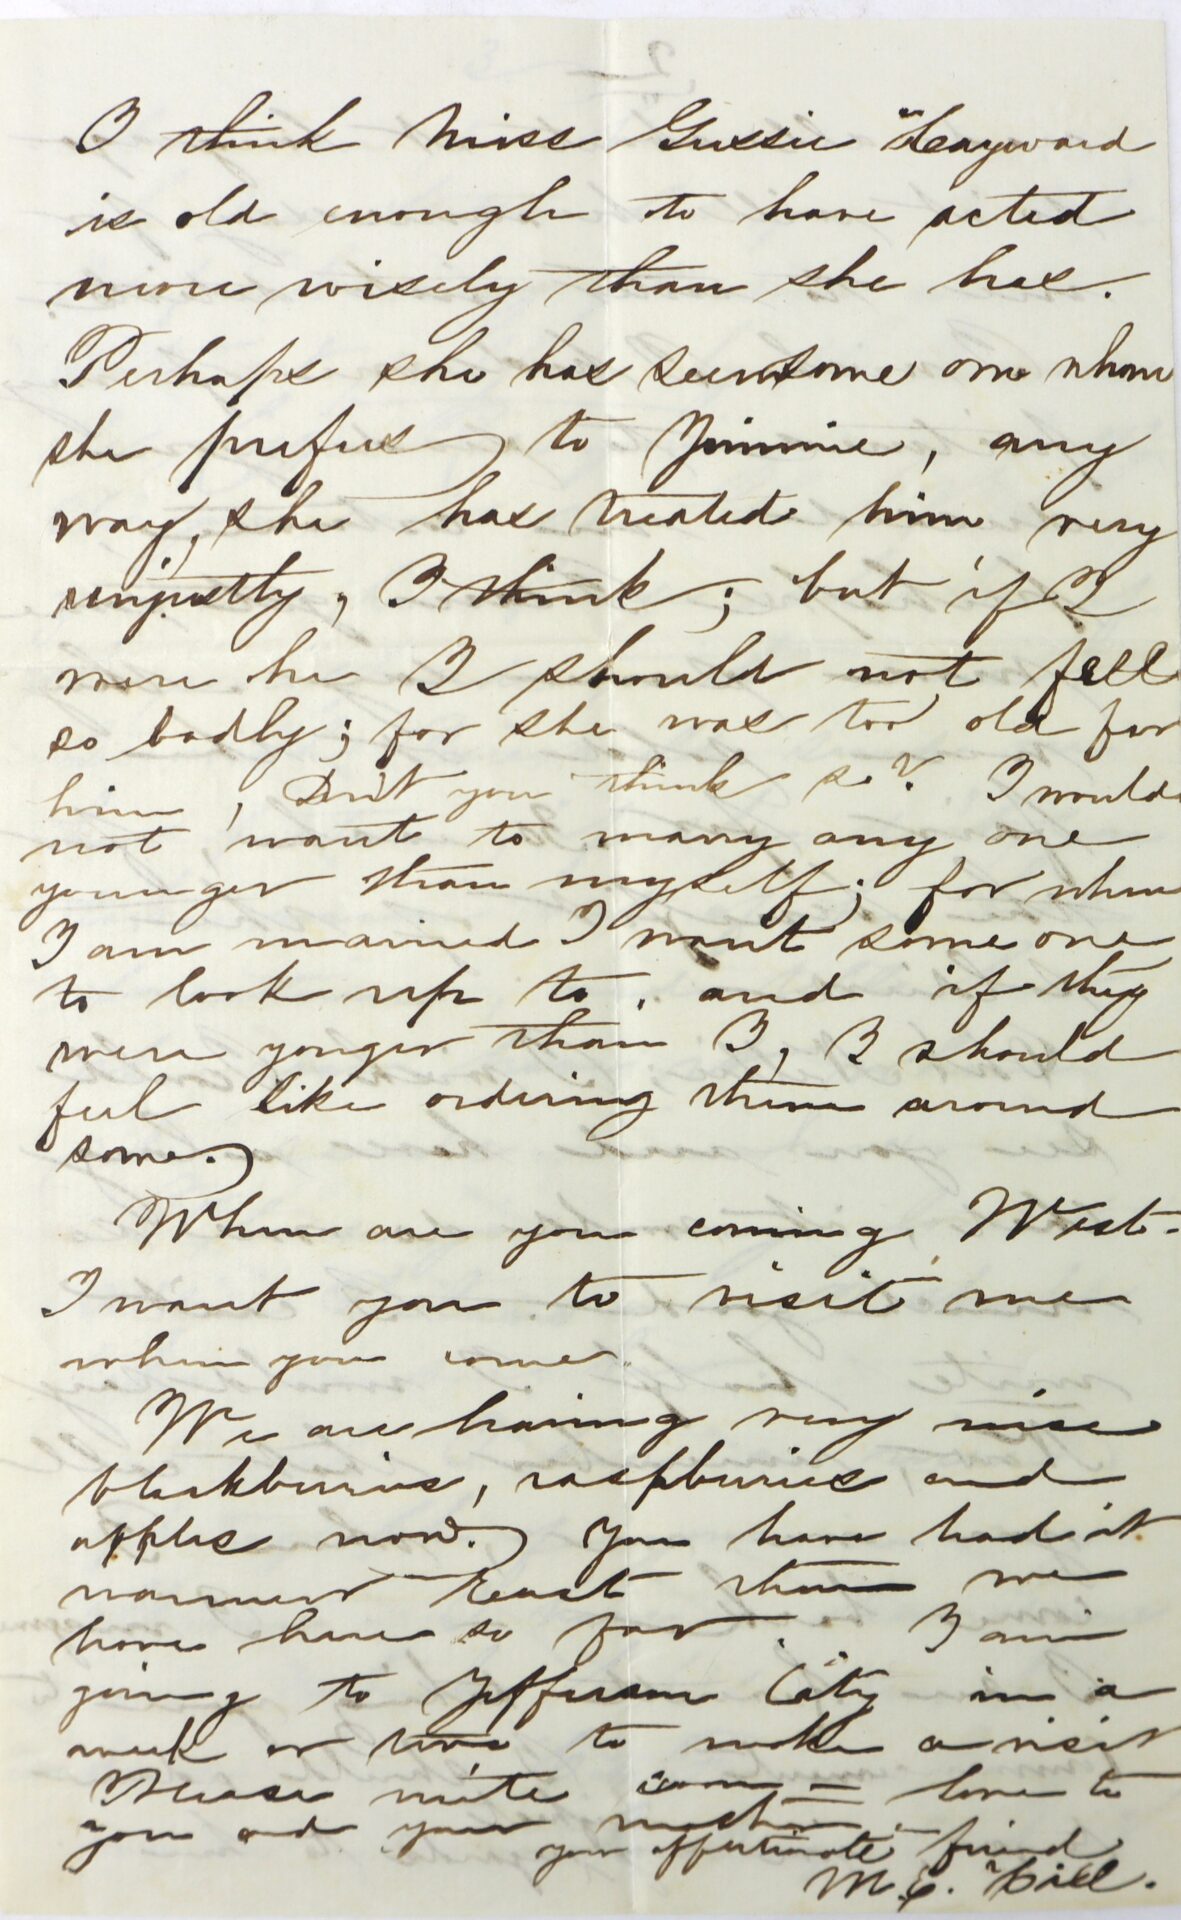 I think Miss Gussie Hayward
is old enough to have acted
more wisely than she has.
Perhaps she has seen some one whom
she prefers to Jimmie, any
way, she has treated him very
unjustly, I think; but if I
were he I should not feel
so badly; for she was too old for
him, Don't you think so? I would
not want to marry any one
younger than myself; for when
I am married I want some one
to look up to, and if they
were yonger than I, I should
feel like ordering them around
some.
When are you coming West.
I want you to visit me
when you come.
We are having very nise
blackburries, raspburries and
apples now. You have had it
warmer East than we
have here so far. I am
going to Jefferson City in a
week or two to make a visit
Please write soon = love to
you and your mother =
your affectionate friend
M. E. Hill.